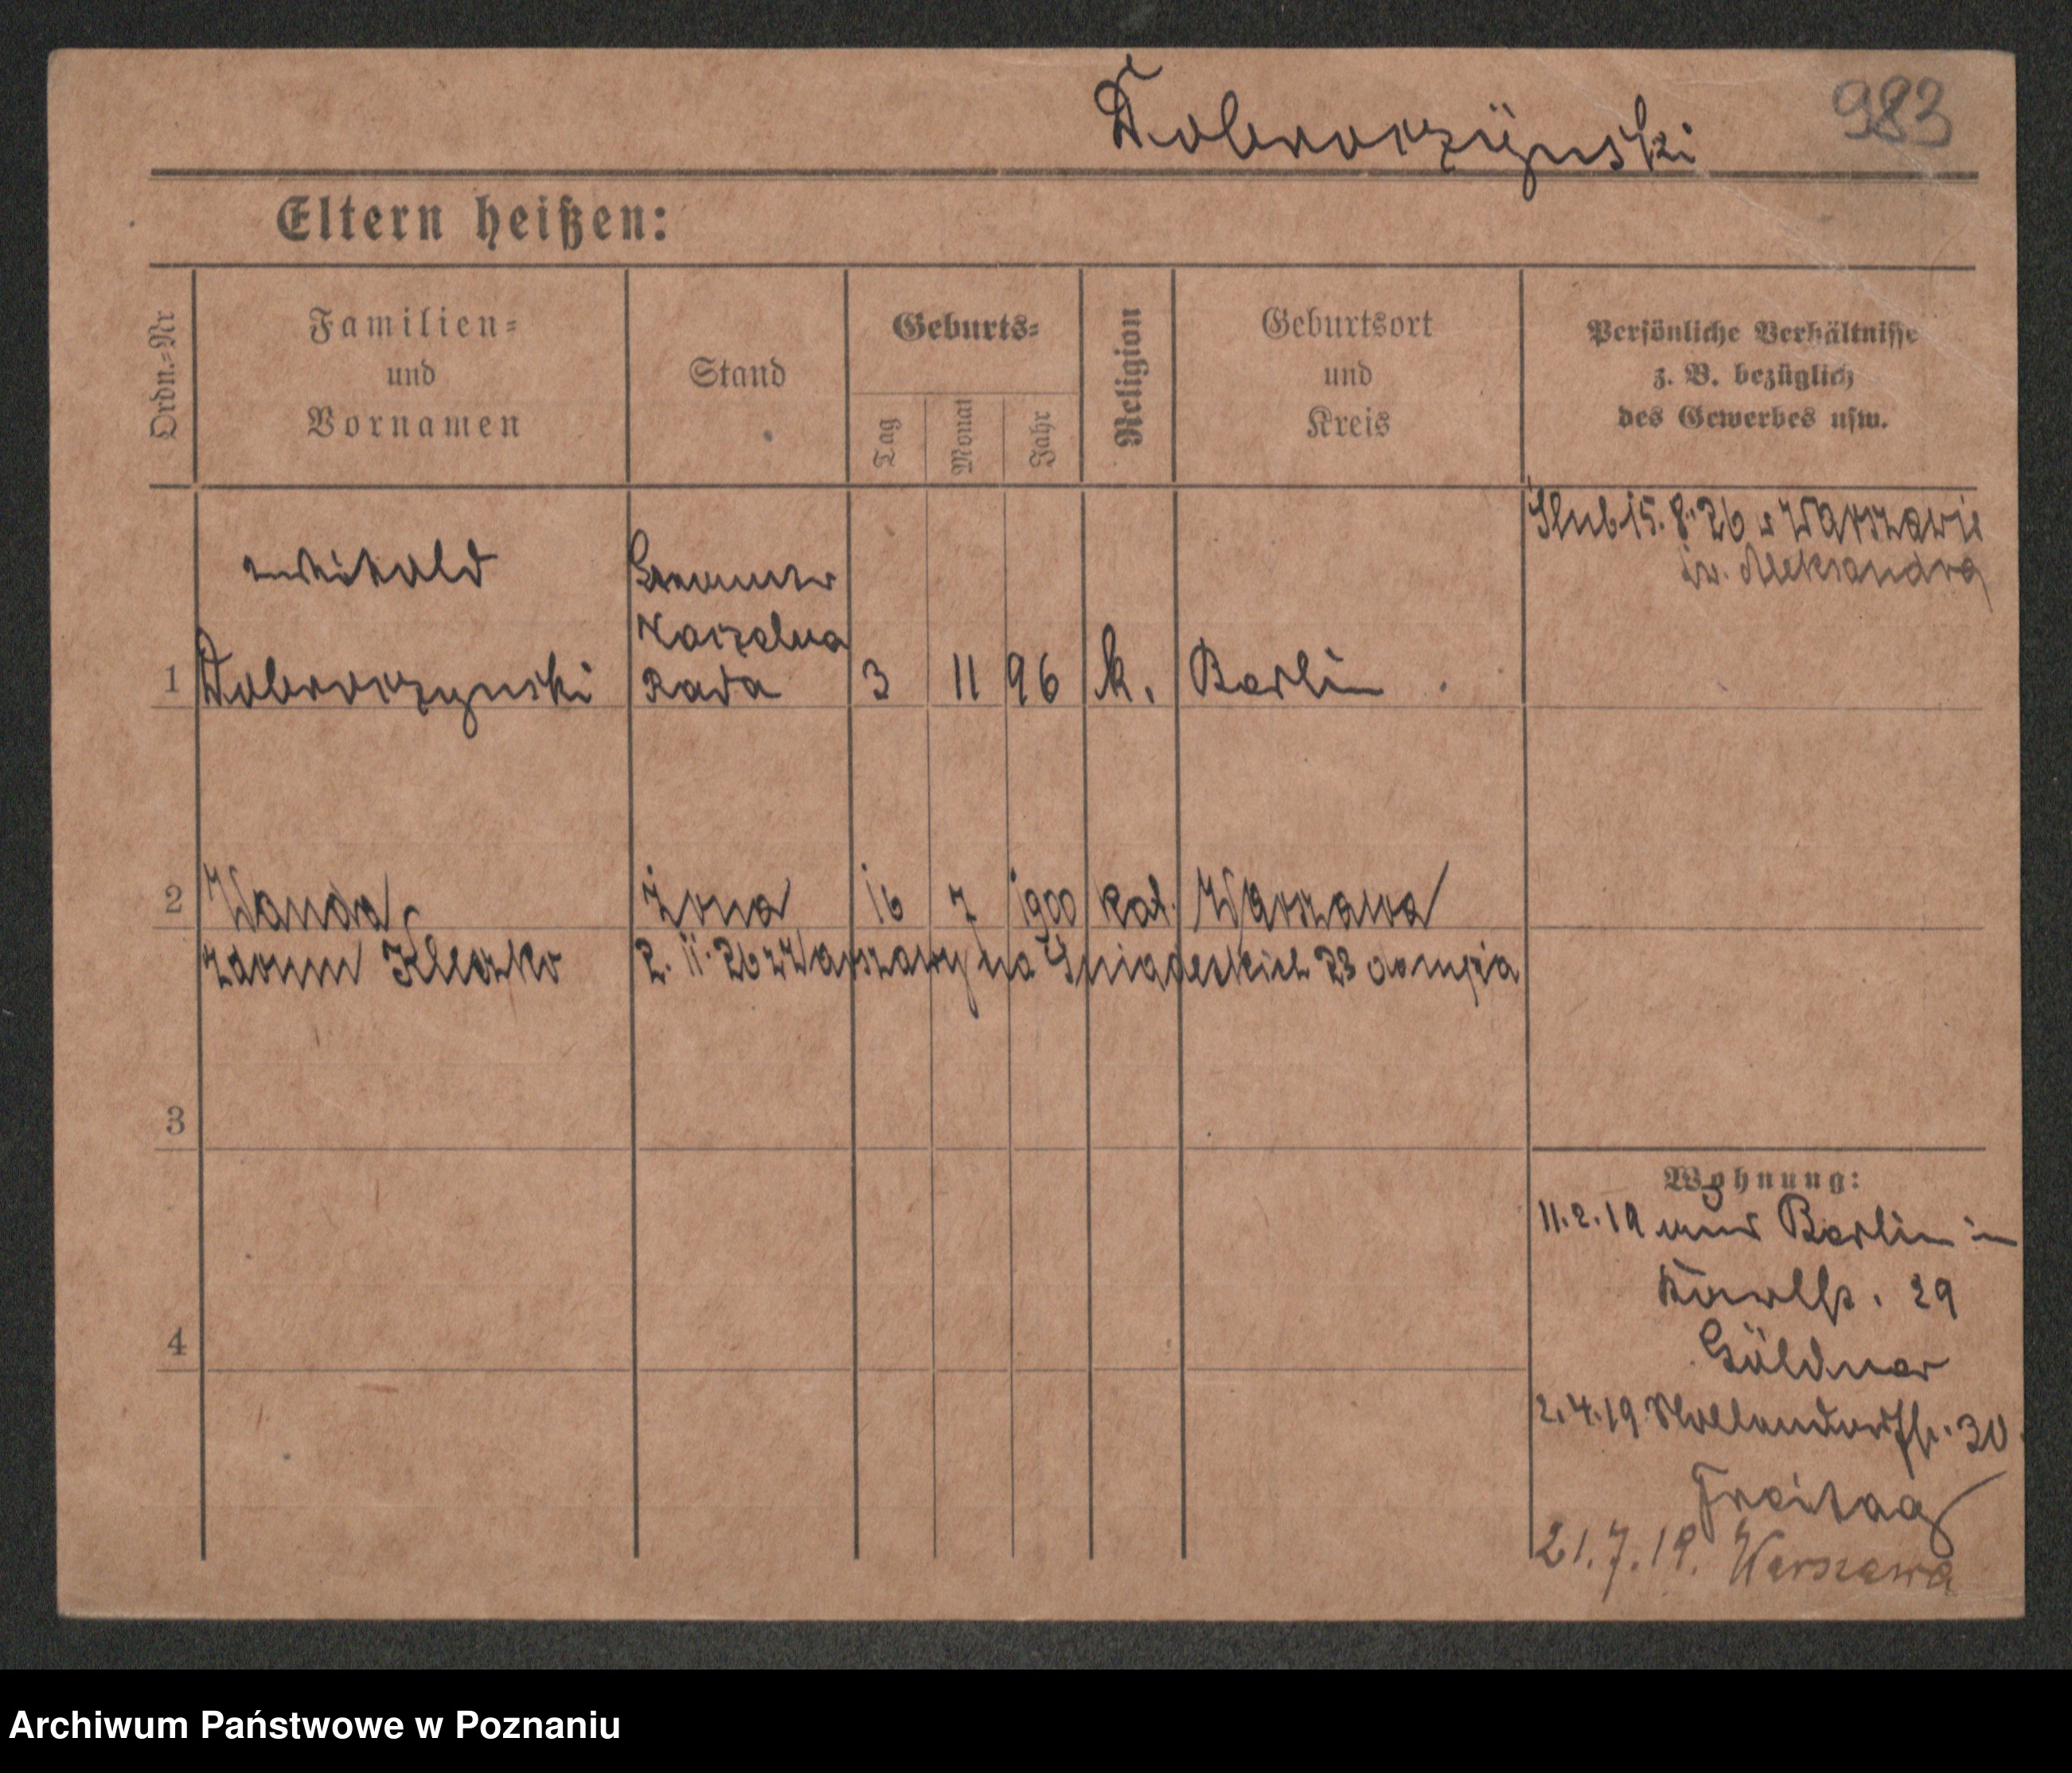 Dobroczÿnski
983
Eltern heißen:
Ordn.=Nr
Familien=
und
Vornamen
Stand
Geburts=
Tag
Monat
Jahr
Religion
Geburtsort
und
Kreis
Persönliche Verhältnisse
z. B. bezüglich
des Gewerbes usw.
Slub 15. 8. 26 w Warszawie
św. Aleksandra
Witold
Naczelna
1 Dobroczynski Rada 3 11 96 k. Berlin
2 Wanda żona 16 7 1900 kat. Warszawa
2. 11. 26 z Warszawy na Śniadeckich 23
3
Wohnung:
11.2.19 Berlin in
29
4
Göldner
2.4.19 30
Freitag
21.7.19. Warszawa
Archiwum Państwowe w Poznaniu